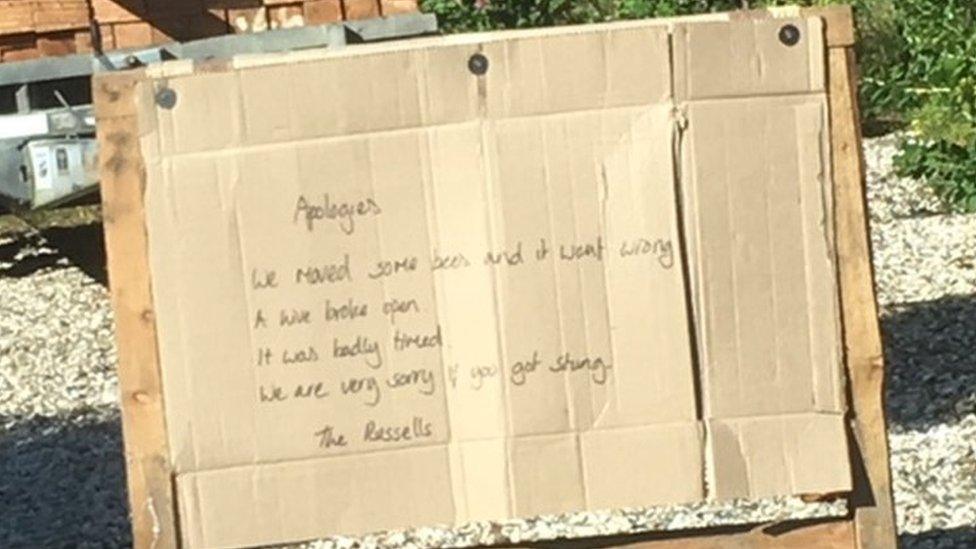 Apologies
We moved some bees and it went wrong
A hive broke open
It was badly timed
We are very sorry if you got stung.
The Russells